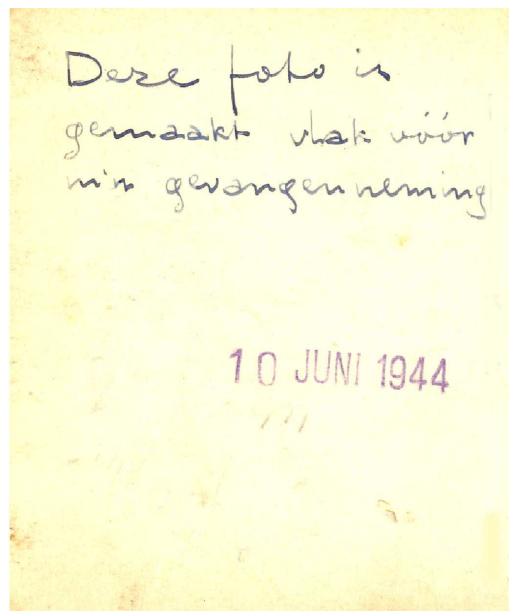 Deze foto is
gemaakt vlak vóór
gevangenneming
10 JUNI 1944